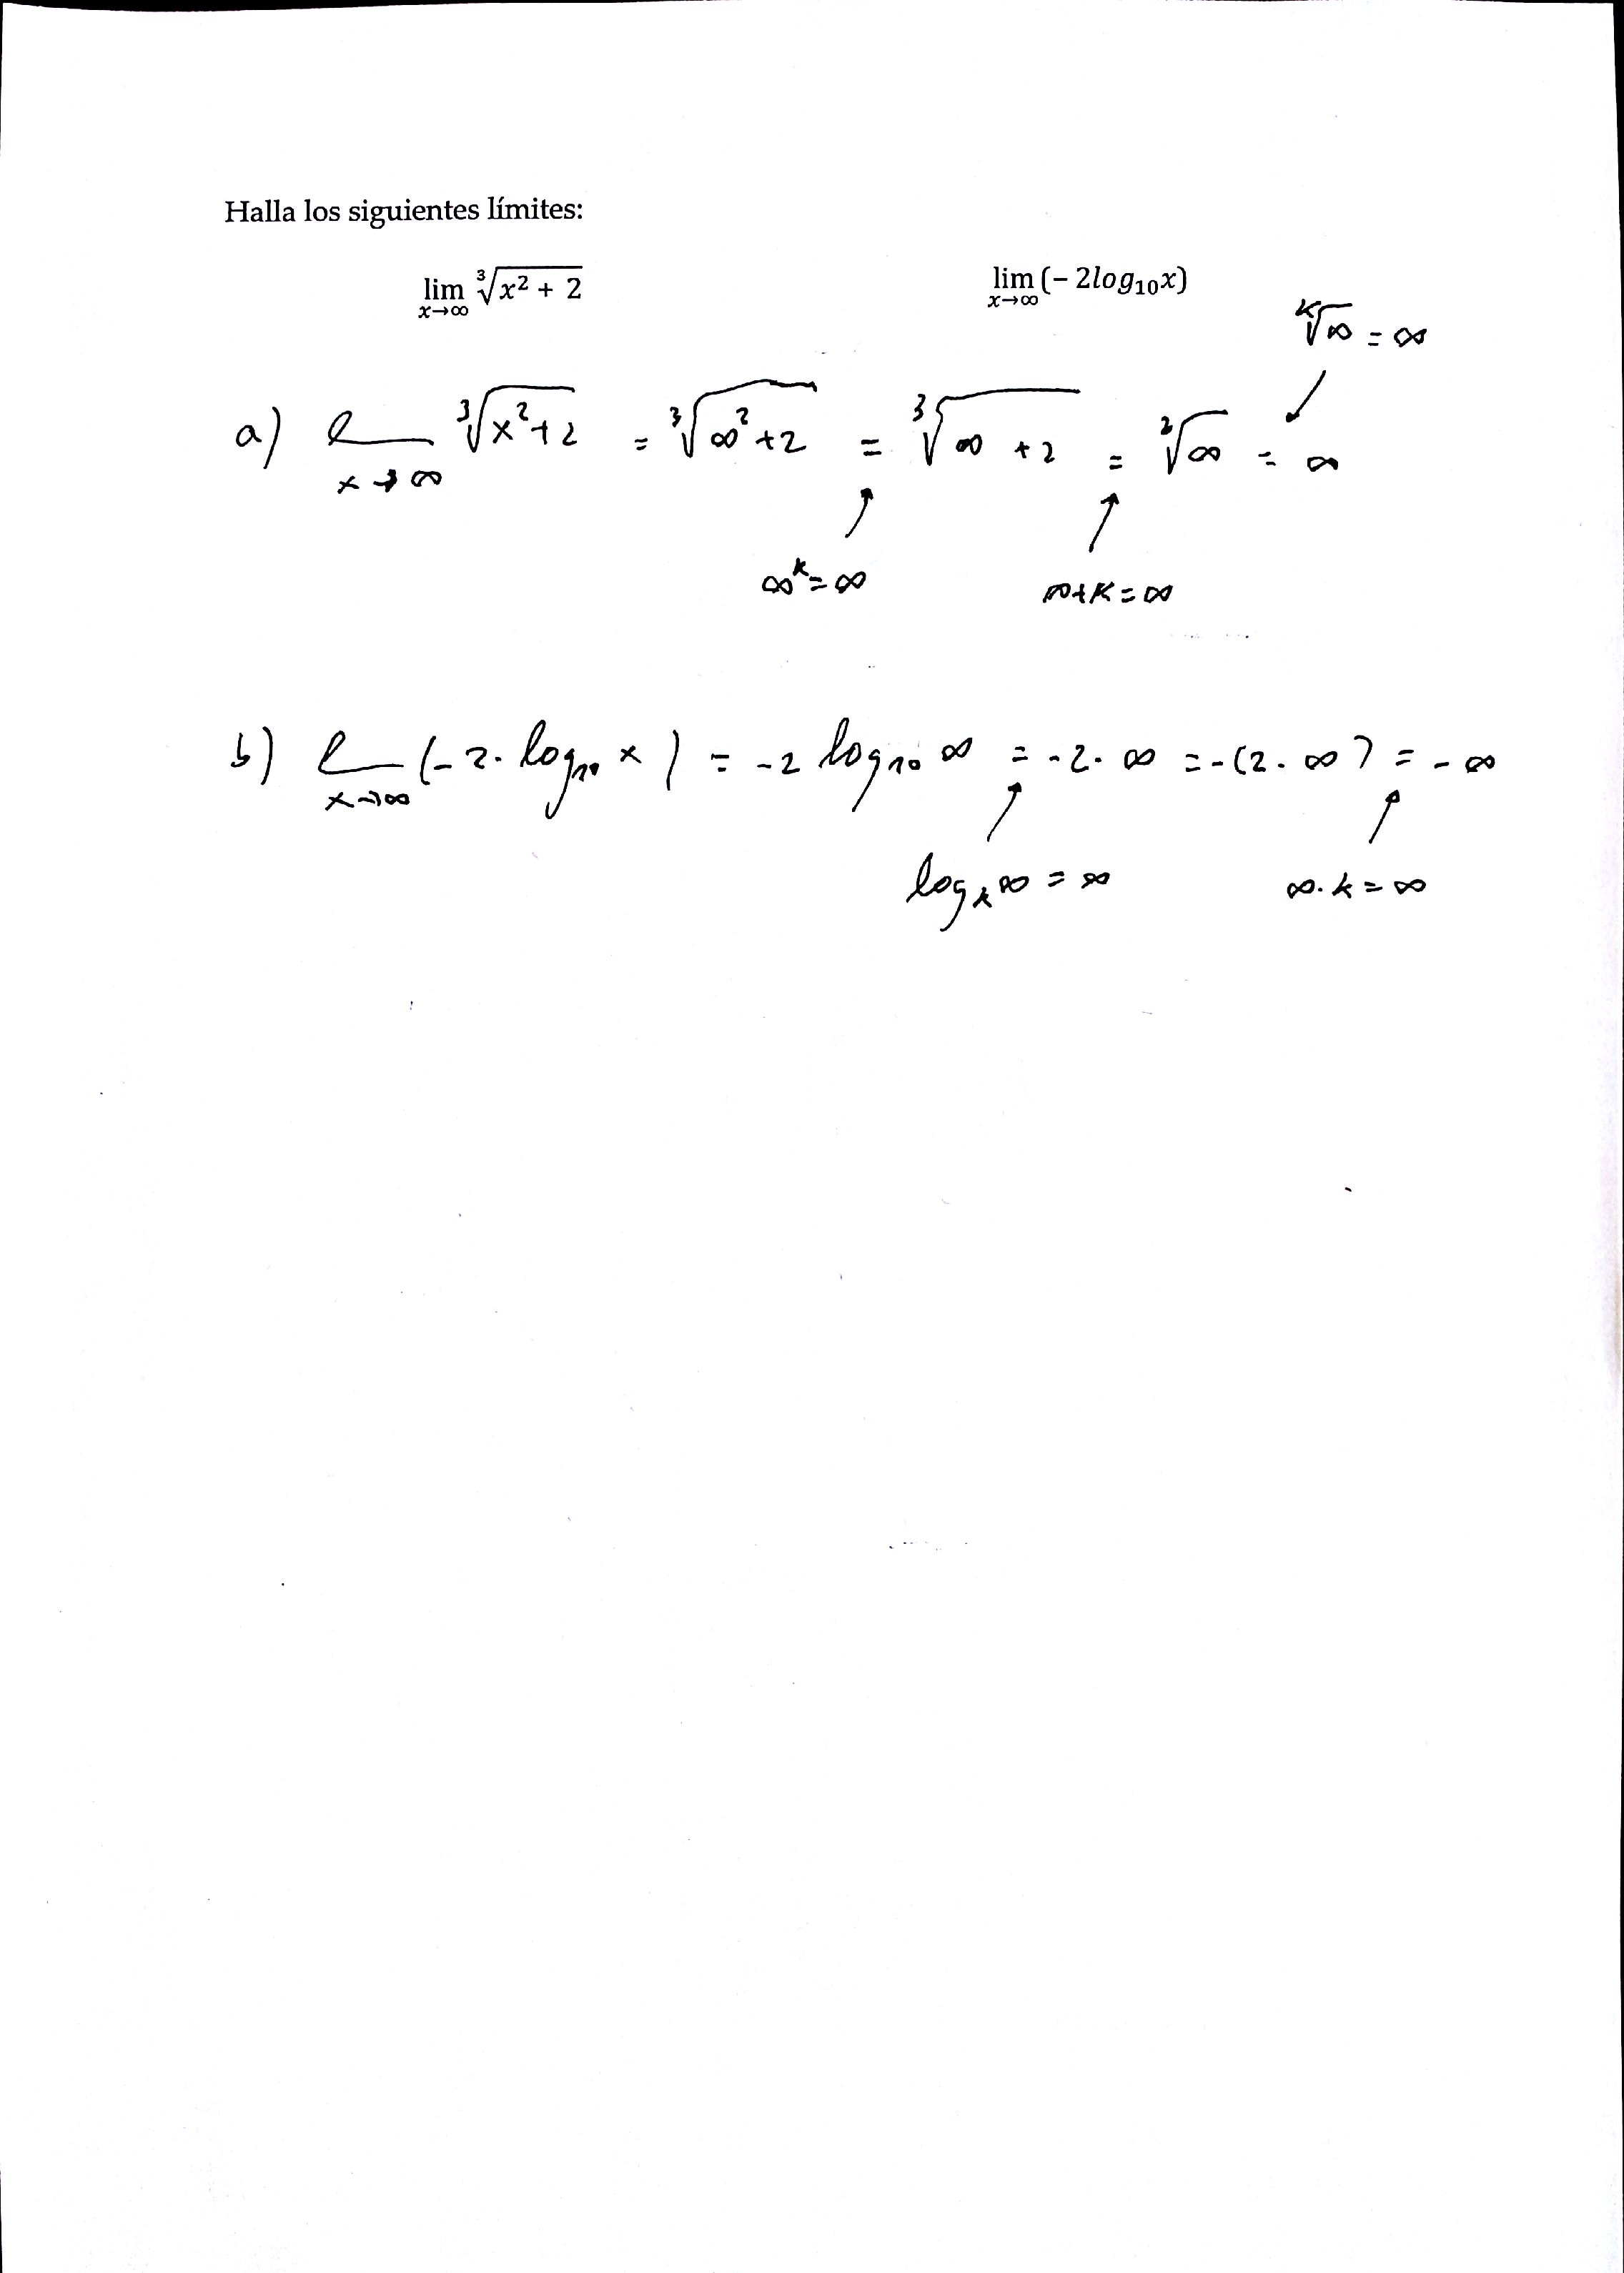 Halla los siguientes límites:
lim x→∞ ∛(x² + 2) lim x→∞ (− 2log₁₀x)
ᵏ√∞ = ∞
a) l x→∞ ³√(x²+2) = ³√(∞²+2) = ³√(∞ +2) = ³√∞ = ∞
∞ᵏ = ∞ ∞+K = ∞
b) l x→∞ (-2·log₁₀ x) = -2 log₁₀ ∞ = -2·∞ = -(2·∞) = -∞
logₖ ∞ = ∞ ∞·k = ∞